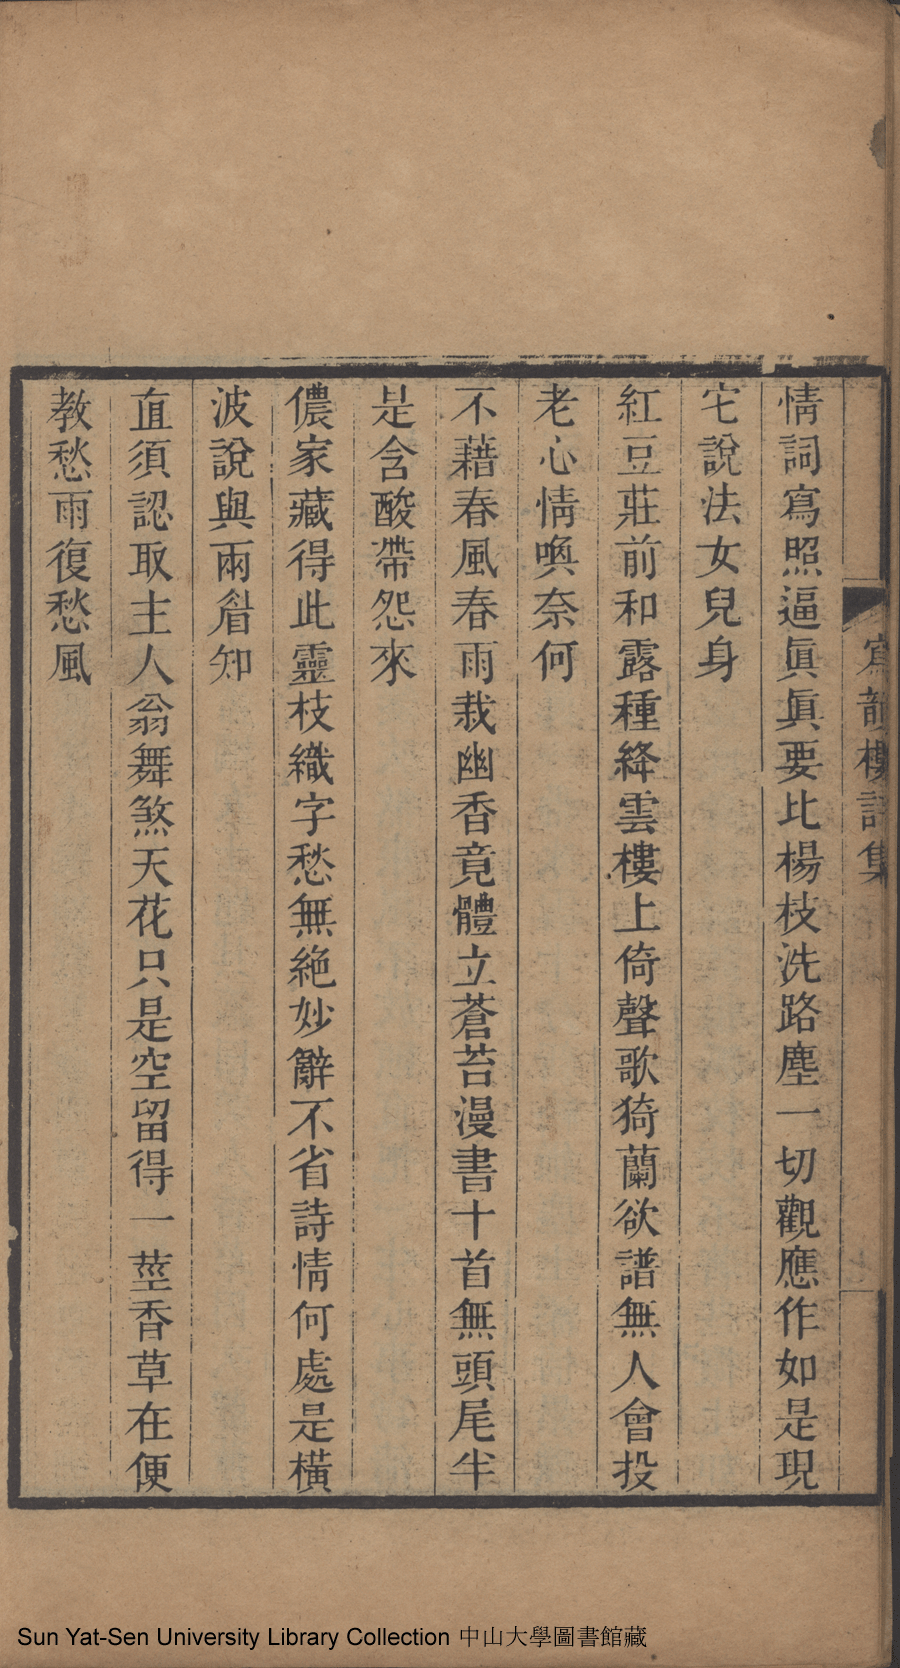 寫韻樓詩集
情詞寫照逼眞眞要比楊枝洗路塵一切觀應作如是現
宅說法女兒身
紅豆莊前和露種絳雲樓上倚聲歌猗蘭欲譜無人會投
老心情喚奈何
不藉春風春雨栽幽香竟體立蒼苔漫書十首無頭尾半
是含酸帶怨來
儂家藏得此靈枝織字愁無絕妙辭不省詩情何處是橫
波說與兩眉知
直須認取主人翁舞煞天花只是空留得一莖香草在便
教愁雨復愁風
Sun Yat-Sen University Library Collection 中山大學圖書館藏